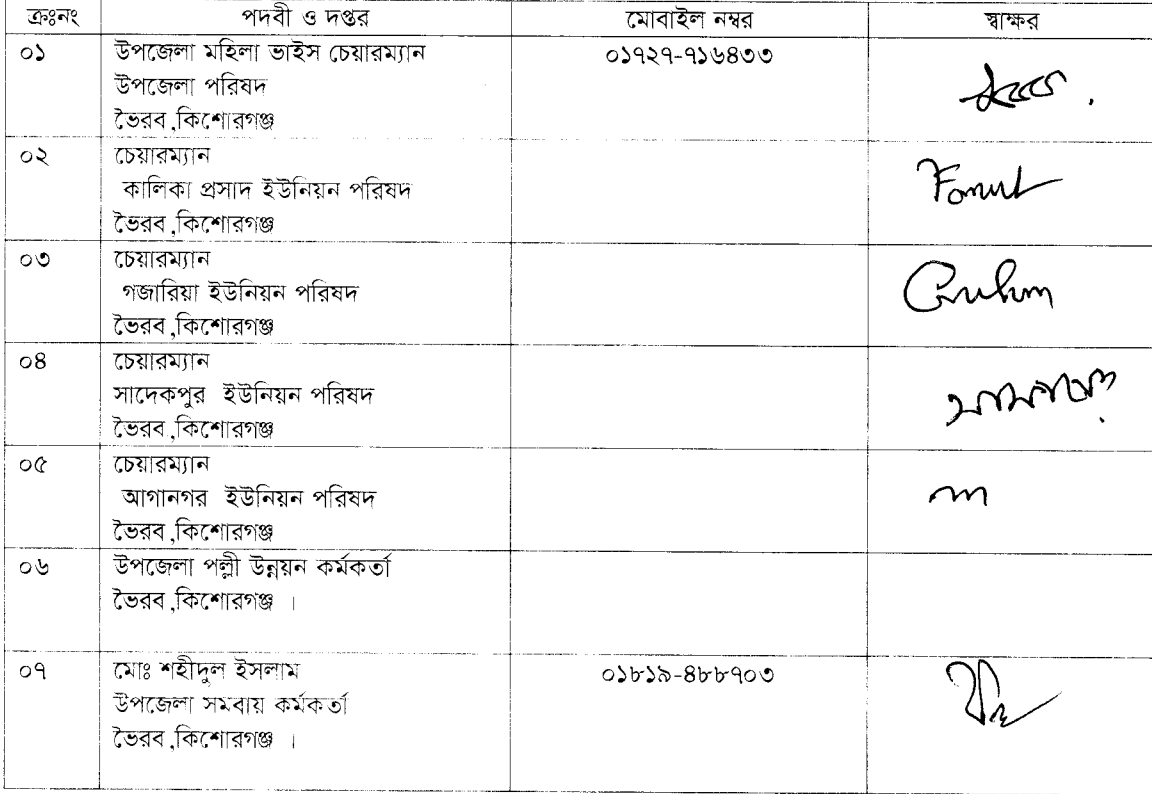 ক্রঃনং পদবী ও দপ্তর মোবাইল নম্বর স্বাক্ষর
০১ উপজেলা মহিলা ভাইস চেয়ারম্যান ০১৭২৭-৭১৬৪৩৩
উপজেলা পরিষদ
ভৈরব,কিশোরগঞ্জ
০২ চেয়ারম্যান
কালিকা প্রসাদ ইউনিয়ন পরিষদ
ভৈরব,কিশোরগঞ্জ
০৩ চেয়ারম্যান
গজারিয়া ইউনিয়ন পরিষদ
ভৈরব,কিশোরগঞ্জ
০৪ চেয়ারম্যান
সাদেকপুর ইউনিয়ন পরিষদ
ভৈরব,কিশোরগঞ্জ
০৫ চেয়ারম্যান
আগানগর ইউনিয়ন পরিষদ
ভৈরব,কিশোরগঞ্জ
০৬ উপজেলা পল্লী উন্নয়ন কর্মকর্তা
ভৈরব,কিশোরগঞ্জ ।
০৭ মোঃ শহীদুল ইসলাম ০১৮১৯-৪৮৮৭০৩
উপজেলা সমবায় কর্মকর্তা
ভৈরব,কিশোরগঞ্জ ।